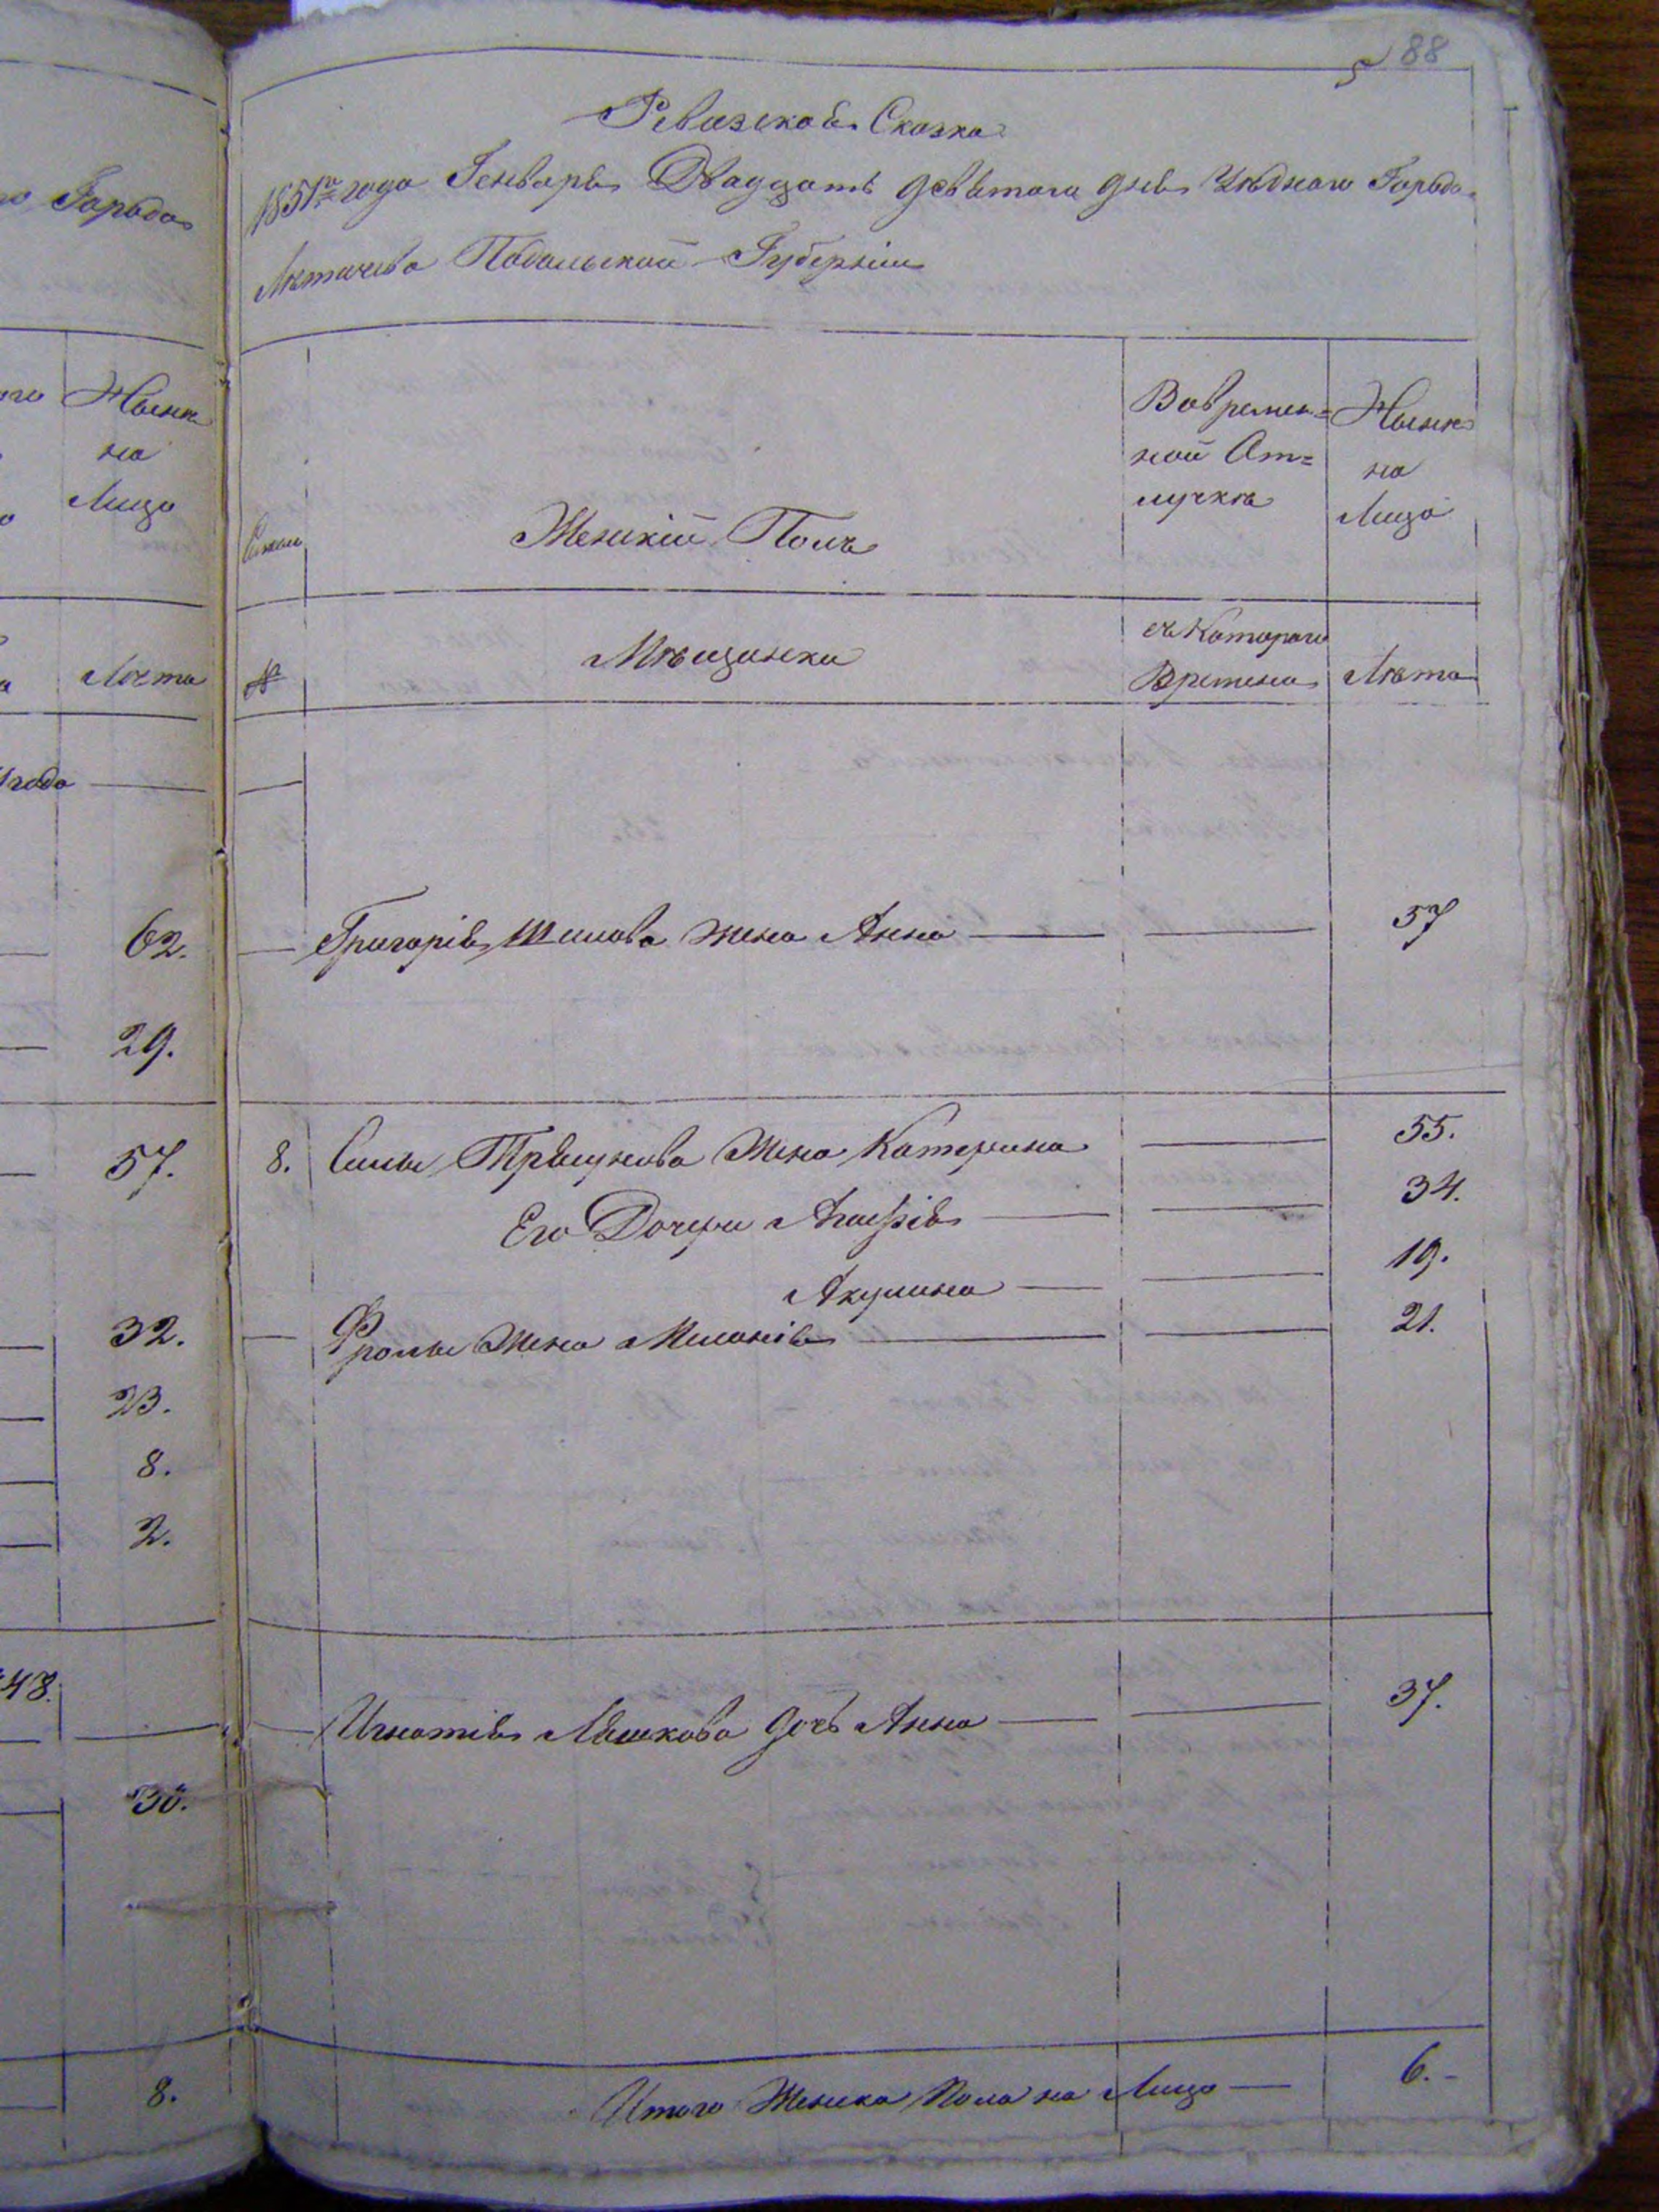 88
Ревизская Сказка
1851го года Генваря Двадцать девятого дня Уѣднаго Города
Лѣтичева Подольской Губерніи
го Города
Нынѣ
на
Лицо
Лѣта
года
62.
29.
57.
32.
23.
8.
2.
48.
30.
8.
Семьи
Женскій Полъ
Вовремен=
ной От=
лучкѣ
Нынѣ
на
Лицо
№
Мѣщанки
съ Котораго
Времени
Лѣта
Григорія жена Анна 57
8. Силы жена Катерина 55.
Его Дочери 34.
Акулина 19.
Фролы жена Меланія 21.
Игнатія дочь Анна 37.
Итого Женска Пола на Лицо 6.